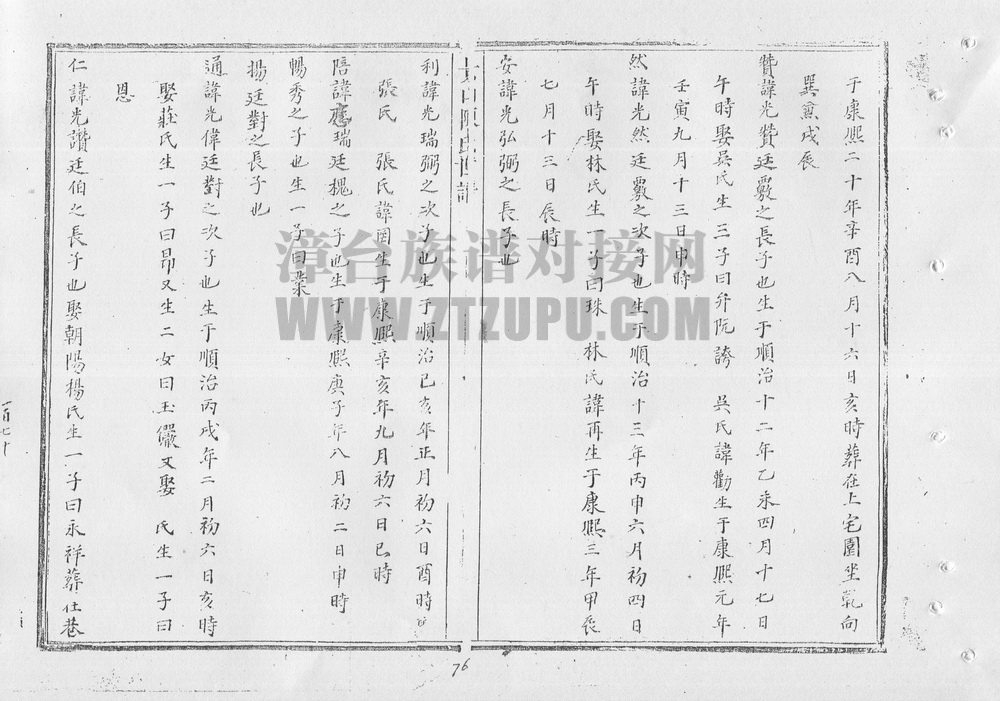 于康熙二十年辛酉八月十六日亥時葬在上宅園坐乾向
巽兼戌辰
贊諱光贊廷覈之長子也生于順治十二年乙未四月十七日
午時娶吳氏生三子曰弁阮誇 吳氏諱勸生于康熙元年
壬寅九月十三日申時
然諱光然廷覈之次子也生于順治十三年丙申六月初四日
午時娶林氏生一子曰珠 林氏諱再生于康熙三年甲辰
七月十三日辰時
安諱光弘弼之長子也
陳氏世譜
利諱光瑞弼之次子也生于順治己亥年正月初六日酉時
張氏 張氏諱固生于康熙辛亥年九月初六日巳時
陪諱應瑞廷槐之子也生于康熙庚子年八月初二日申時
暢秀之子也生一子曰業
揚廷對之長子也
通諱光偉廷對之次子也生于順治丙戌年二月初六日亥時
娶莊氏生一子曰昂又生二女曰玉儼又娶 氏生一子曰
恩
仁諱光讚廷伯之長子也娶朝陽楊氏生一子曰永祥葬仕巷
一百七十
76
漳台族谱对接网
WWW.ZTZUPU.COM